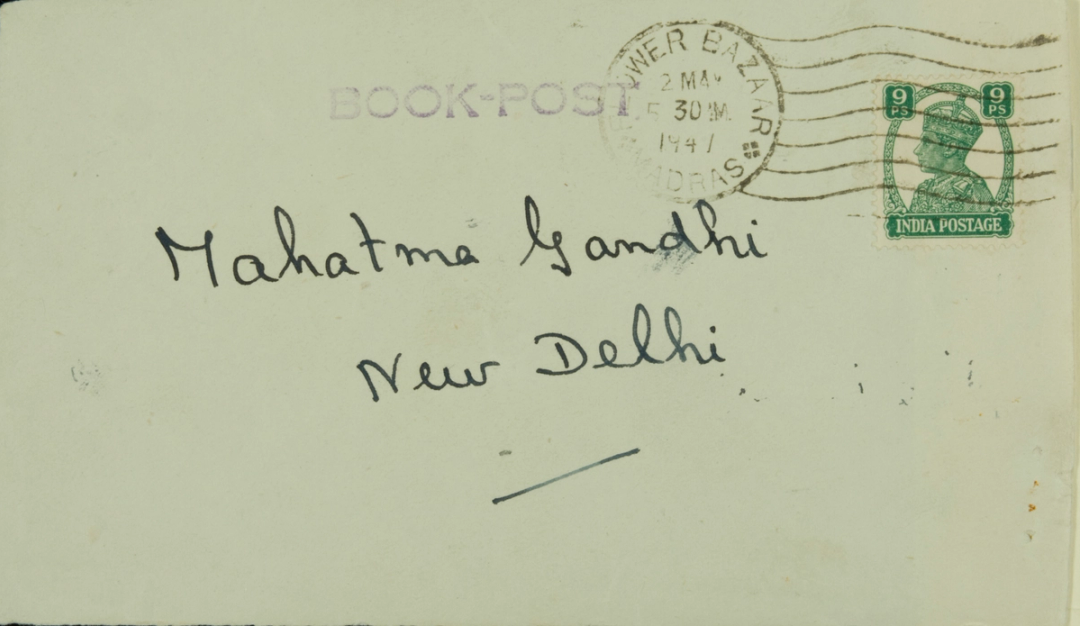 BOOK-POST
FLOWER BAZAAR
2 MAY
5 30 PM
1947
MADRAS
9 PS
9 PS
INDIA POSTAGE
Mahatma Gandhi
New Delhi